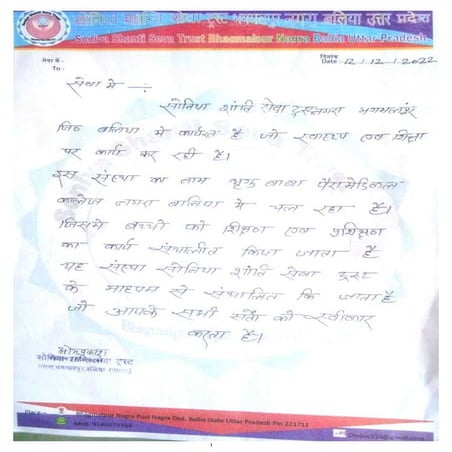 सोनिया शान्ति सेवा ट्रस्ट भगमलपुर नगरा बलिया उत्तर प्रदेश
Soniya Shanti Seva Trust Bhagmalpur Nagra Ballia Uttar Pradesh
सेवा में -
To -
दिनांक
Date - 12/12/2022
सेवा में -:
सोनिया शांति सेवा ट्रस्ट नगरा भगमलपुर
जिला बलिया में कार्यरत है जो स्वास्थ्य एवं शिक्षा
पर कार्य कर रही है।
इस संस्था का नाम भृगु बाबा पैरामेडिकल
कालेज नगरा बलिया में चल रहा है।
जिसमे बच्चो को शिक्षण एवं प्रशिक्षण
का कार्य संचालीत किया जाता है
यह संस्था सोनिया शांति सेवा ट्रस्ट
के माध्यम से संचालित कि जाता है
जो आपके सभी सर्तो को स्वीकार
करता है।
ओमप्रकाश
सोनिया शान्ति सेवा ट्रस्ट
नगरा भगमलपुर, बलिया
Bhagmalpur Nagra Post Nagra Dist. Ballia State Uttar Pradesh Pin 221711
1